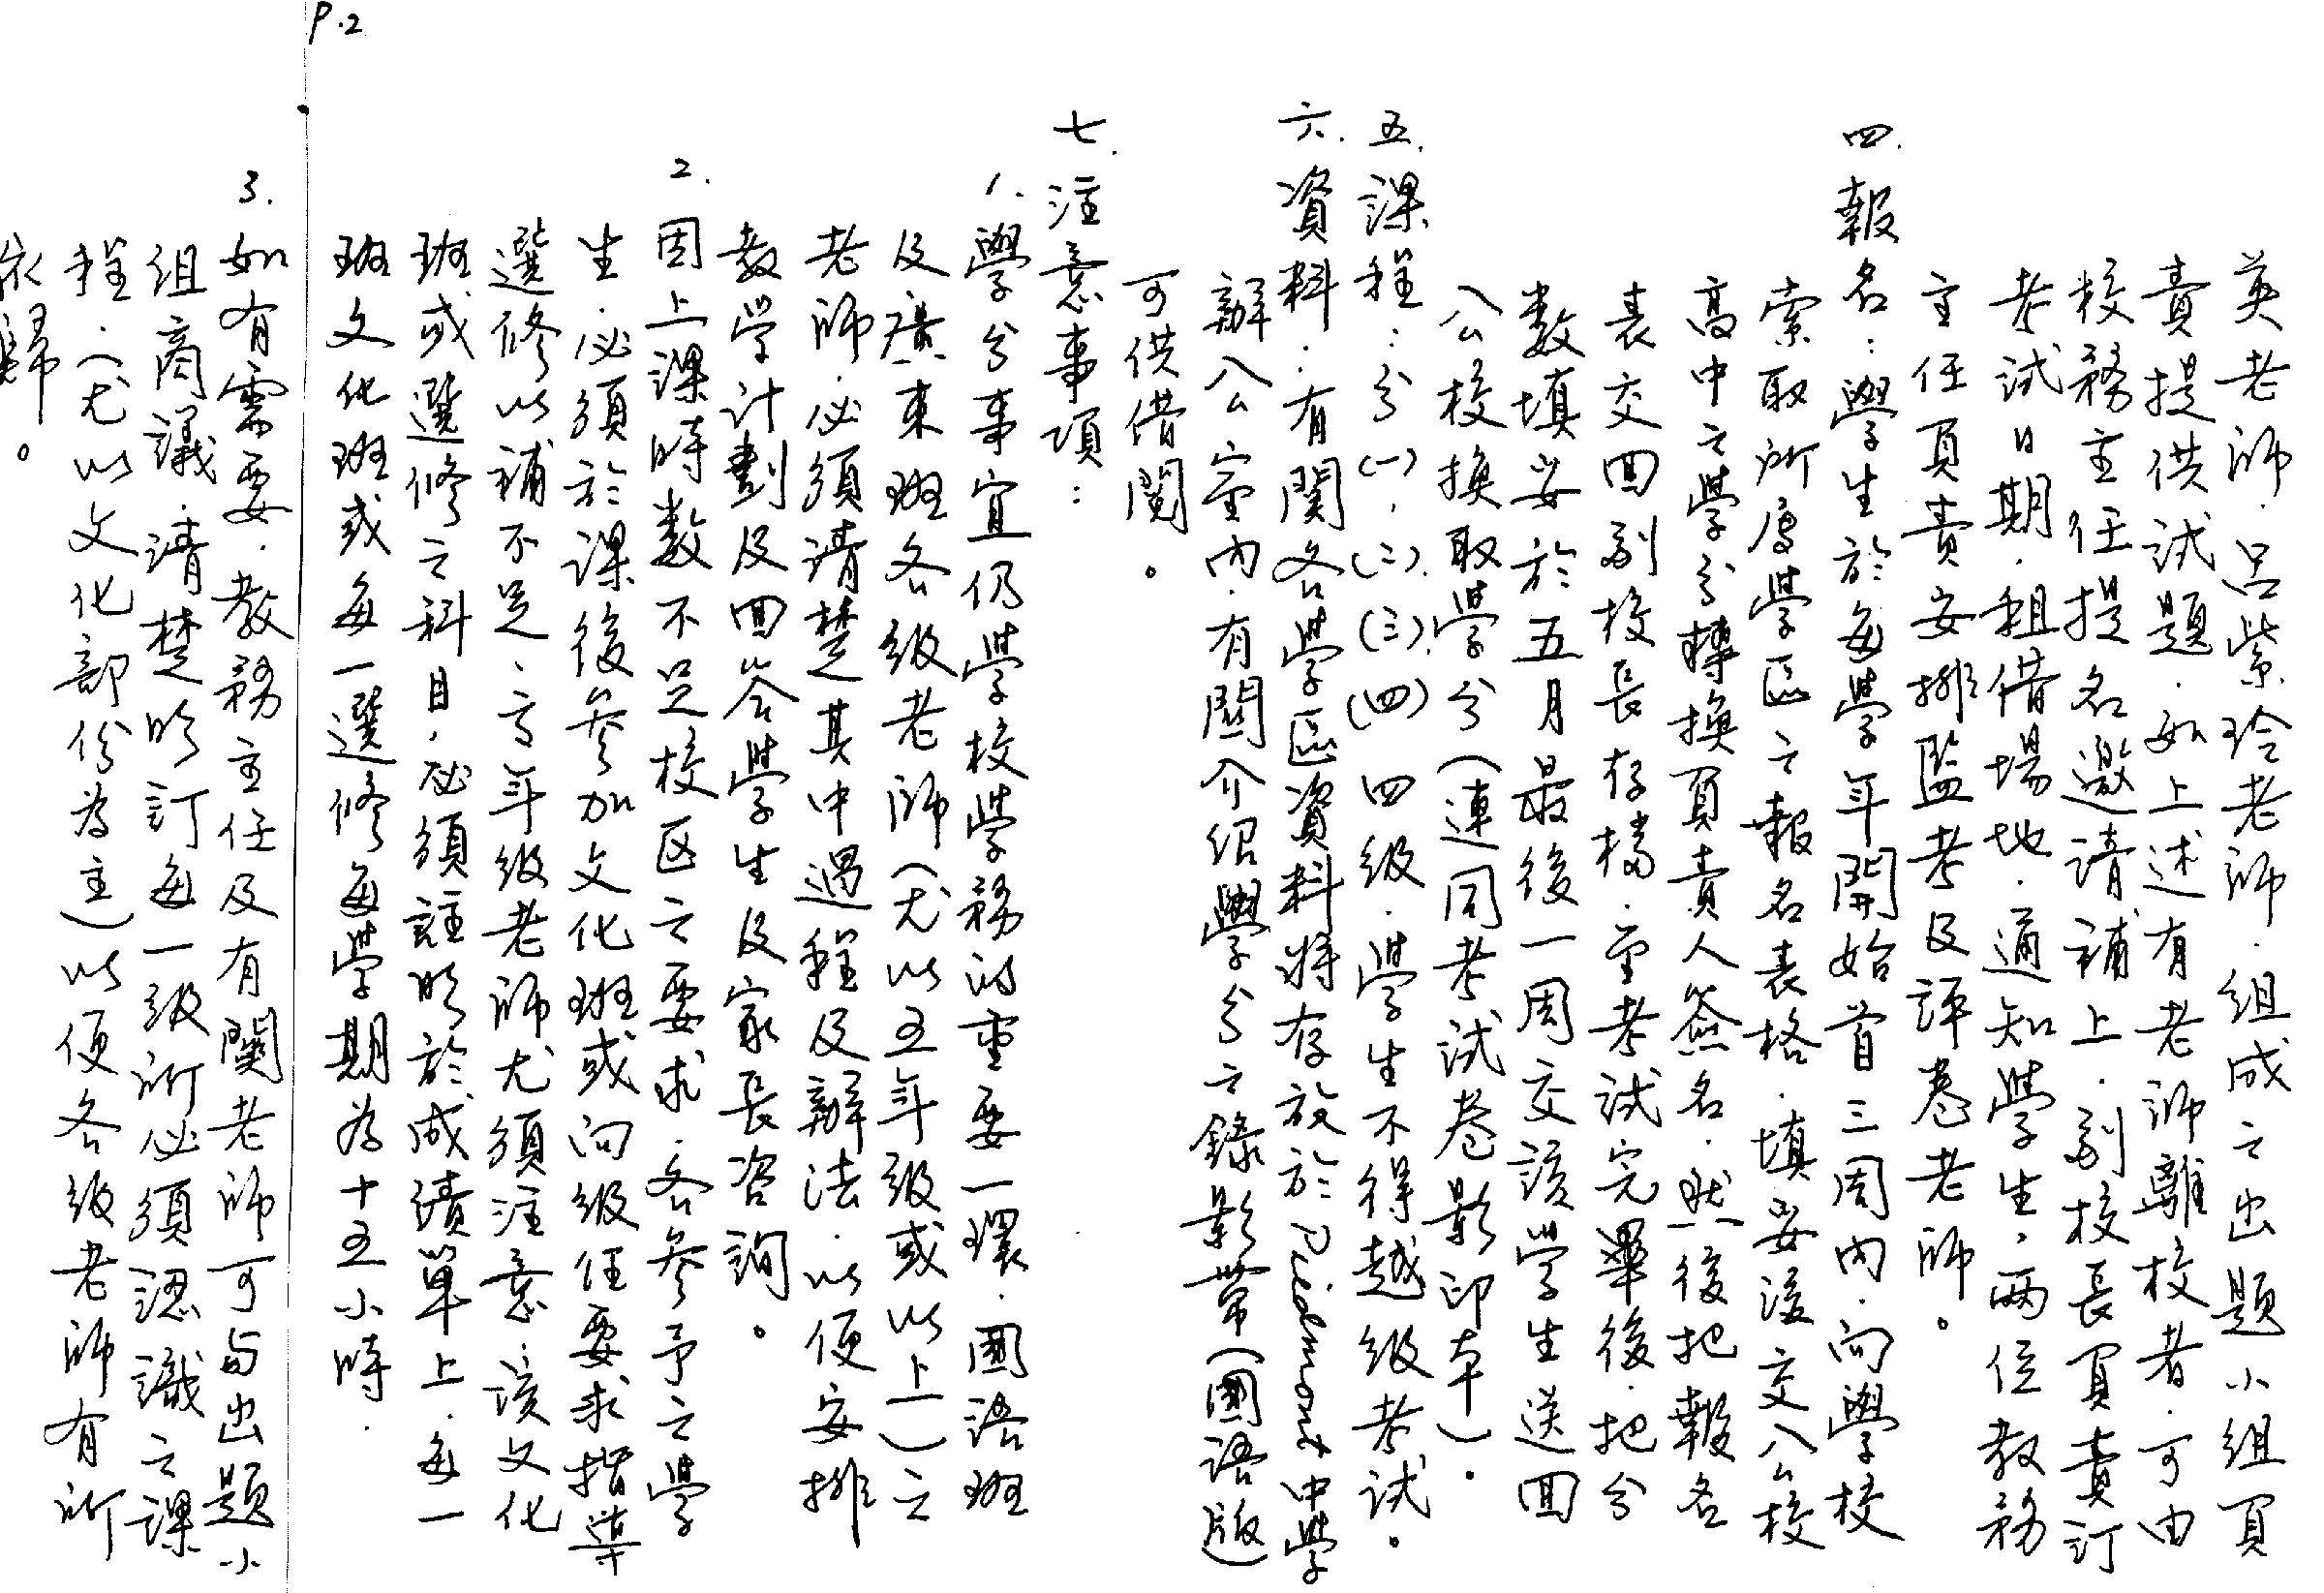 P.2
英老師.呂紫玲老師.組成之出題小組負
責提供試題.如上述有老師離校者.可由
校務主任提名邀請補上.副校長負責訂
考試日期.租借場地.通知學生.兩位教務
主任負責安排監考及評卷老師。
四.報名:學生於每學年開始首三周内.向學校
索取所屬學區之報名表格.填妥後交入公校
高中之學分轉換負責人簽名.然後把報名
表交回副校長存檔.至考試完畢後.把分
數填妥於五月最後一周交該學生送回
公校換取學分(連同考試卷影印本).
五.課程:分(一).(二).(三).(四)四級.學生不得越級考試。
六.資料:有関各學區資料將存放於Piedmont中學
辦公室内.有関介紹學分之錄影帶(國語版)
可供借閱。
七.注意事項:
1.學分事宜仍學校學務的重要一環.國語班
及廣東班各級老師(尤以五年級或以上)之
老師.必須請楚其中過程及辦法.以便安排
教學計劃及回答學生及家長咨詢。
2.因上課時數不足校区之要求.各參予之學
生.必須於課後參加文化班或向級任要求指導
選修以補不足.高年級老師尤須注意.該文化
班或選修之科目.必須註明於成績單上.每一
班文化班或每一選修每學期為十五小時.
3.如有需要.教務主任及有関老師可与出題小
組商議.請楚明訂每一級所必須認識之課
程.(尤以文化部份為主)以便各級老師有所
依歸。